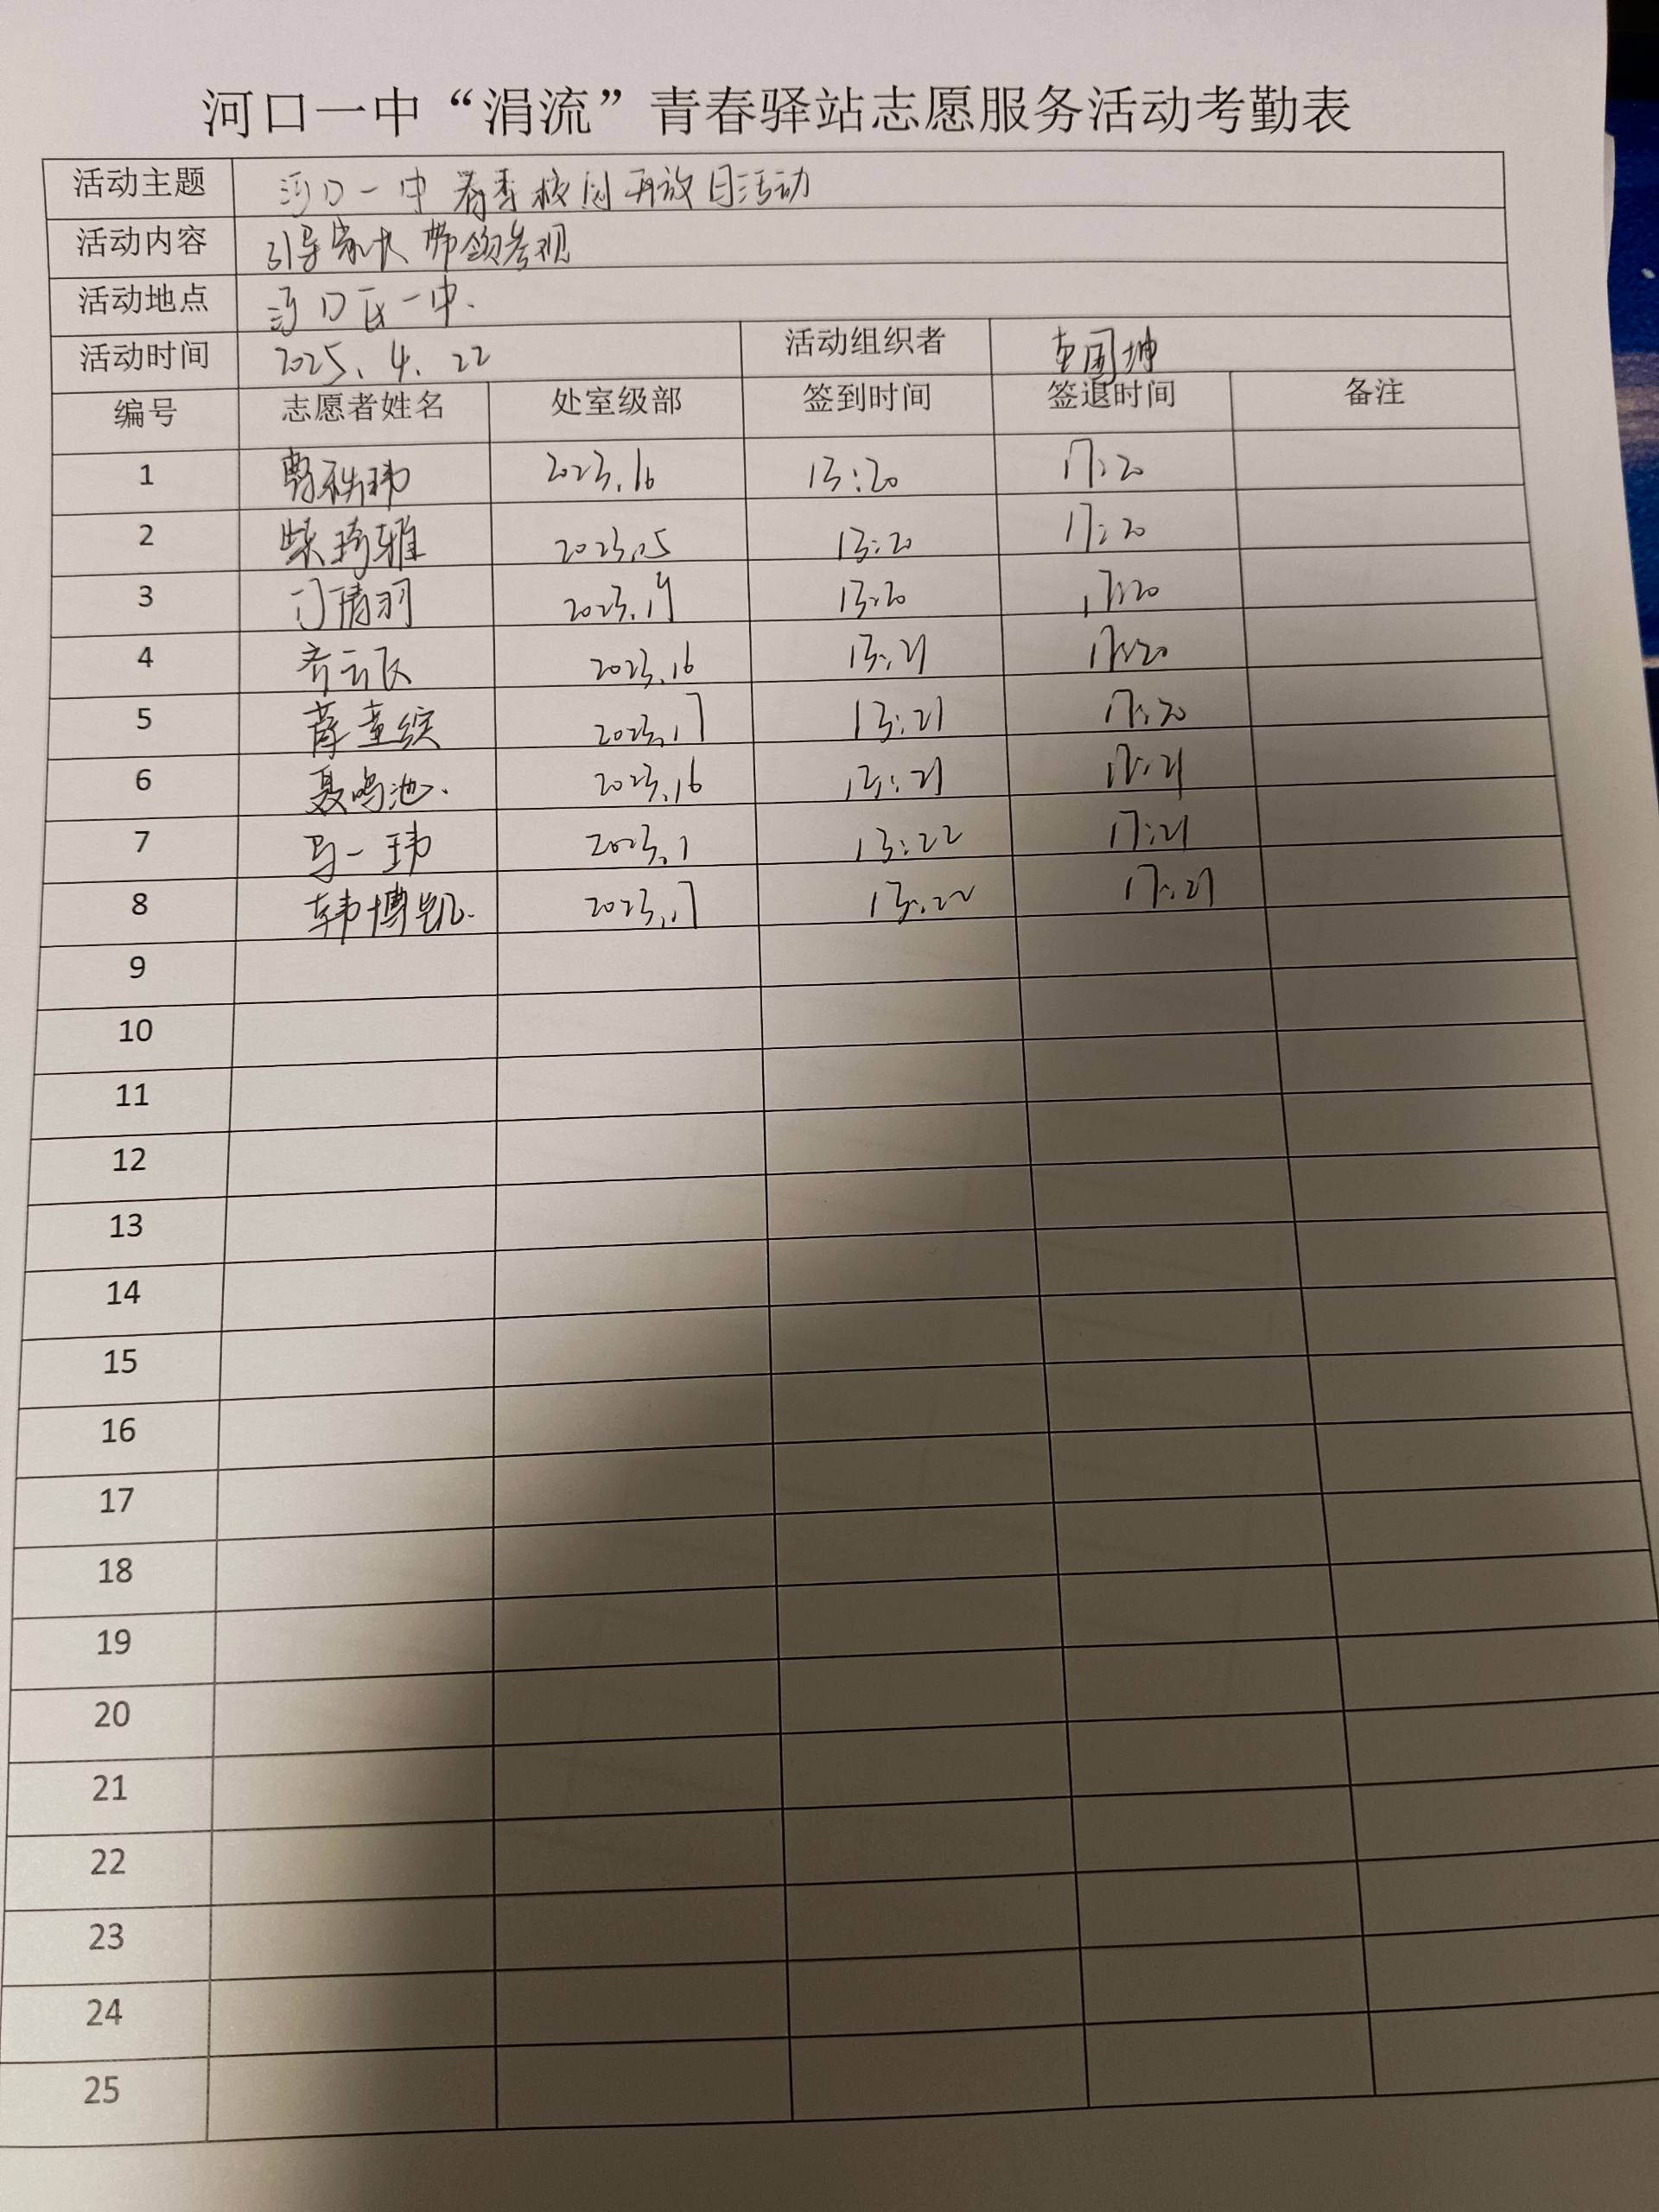 河口一中“涓流”青春驿站志愿服务活动考勤表
活动主题 河口一中春季校园开放日活动
活动内容 引导家长 带领参观
活动地点 河口区一中.
活动时间 2025.4.22 活动组织者 国坤
编号 志愿者姓名 处室级部 签到时间 签退时间 备注
1 2023.16 13:20 17:20
2 柴琦雅 2023.15 13:20 17:20
3 门倩羽 2023.19 13:20 17:20
4 齐云飞 2023.16 13:21 17:20
5 薛童缤 2023.17 13:21 17:20
6 聂鸣池. 2023.16 13:21 17:21
7 马一玮 2023.1 13:22 17:21
8 韩博凯. 2023.17 13:22 17:21
9
10
11
12
13
14
15
16
17
18
19
20
21
22
23
24
25